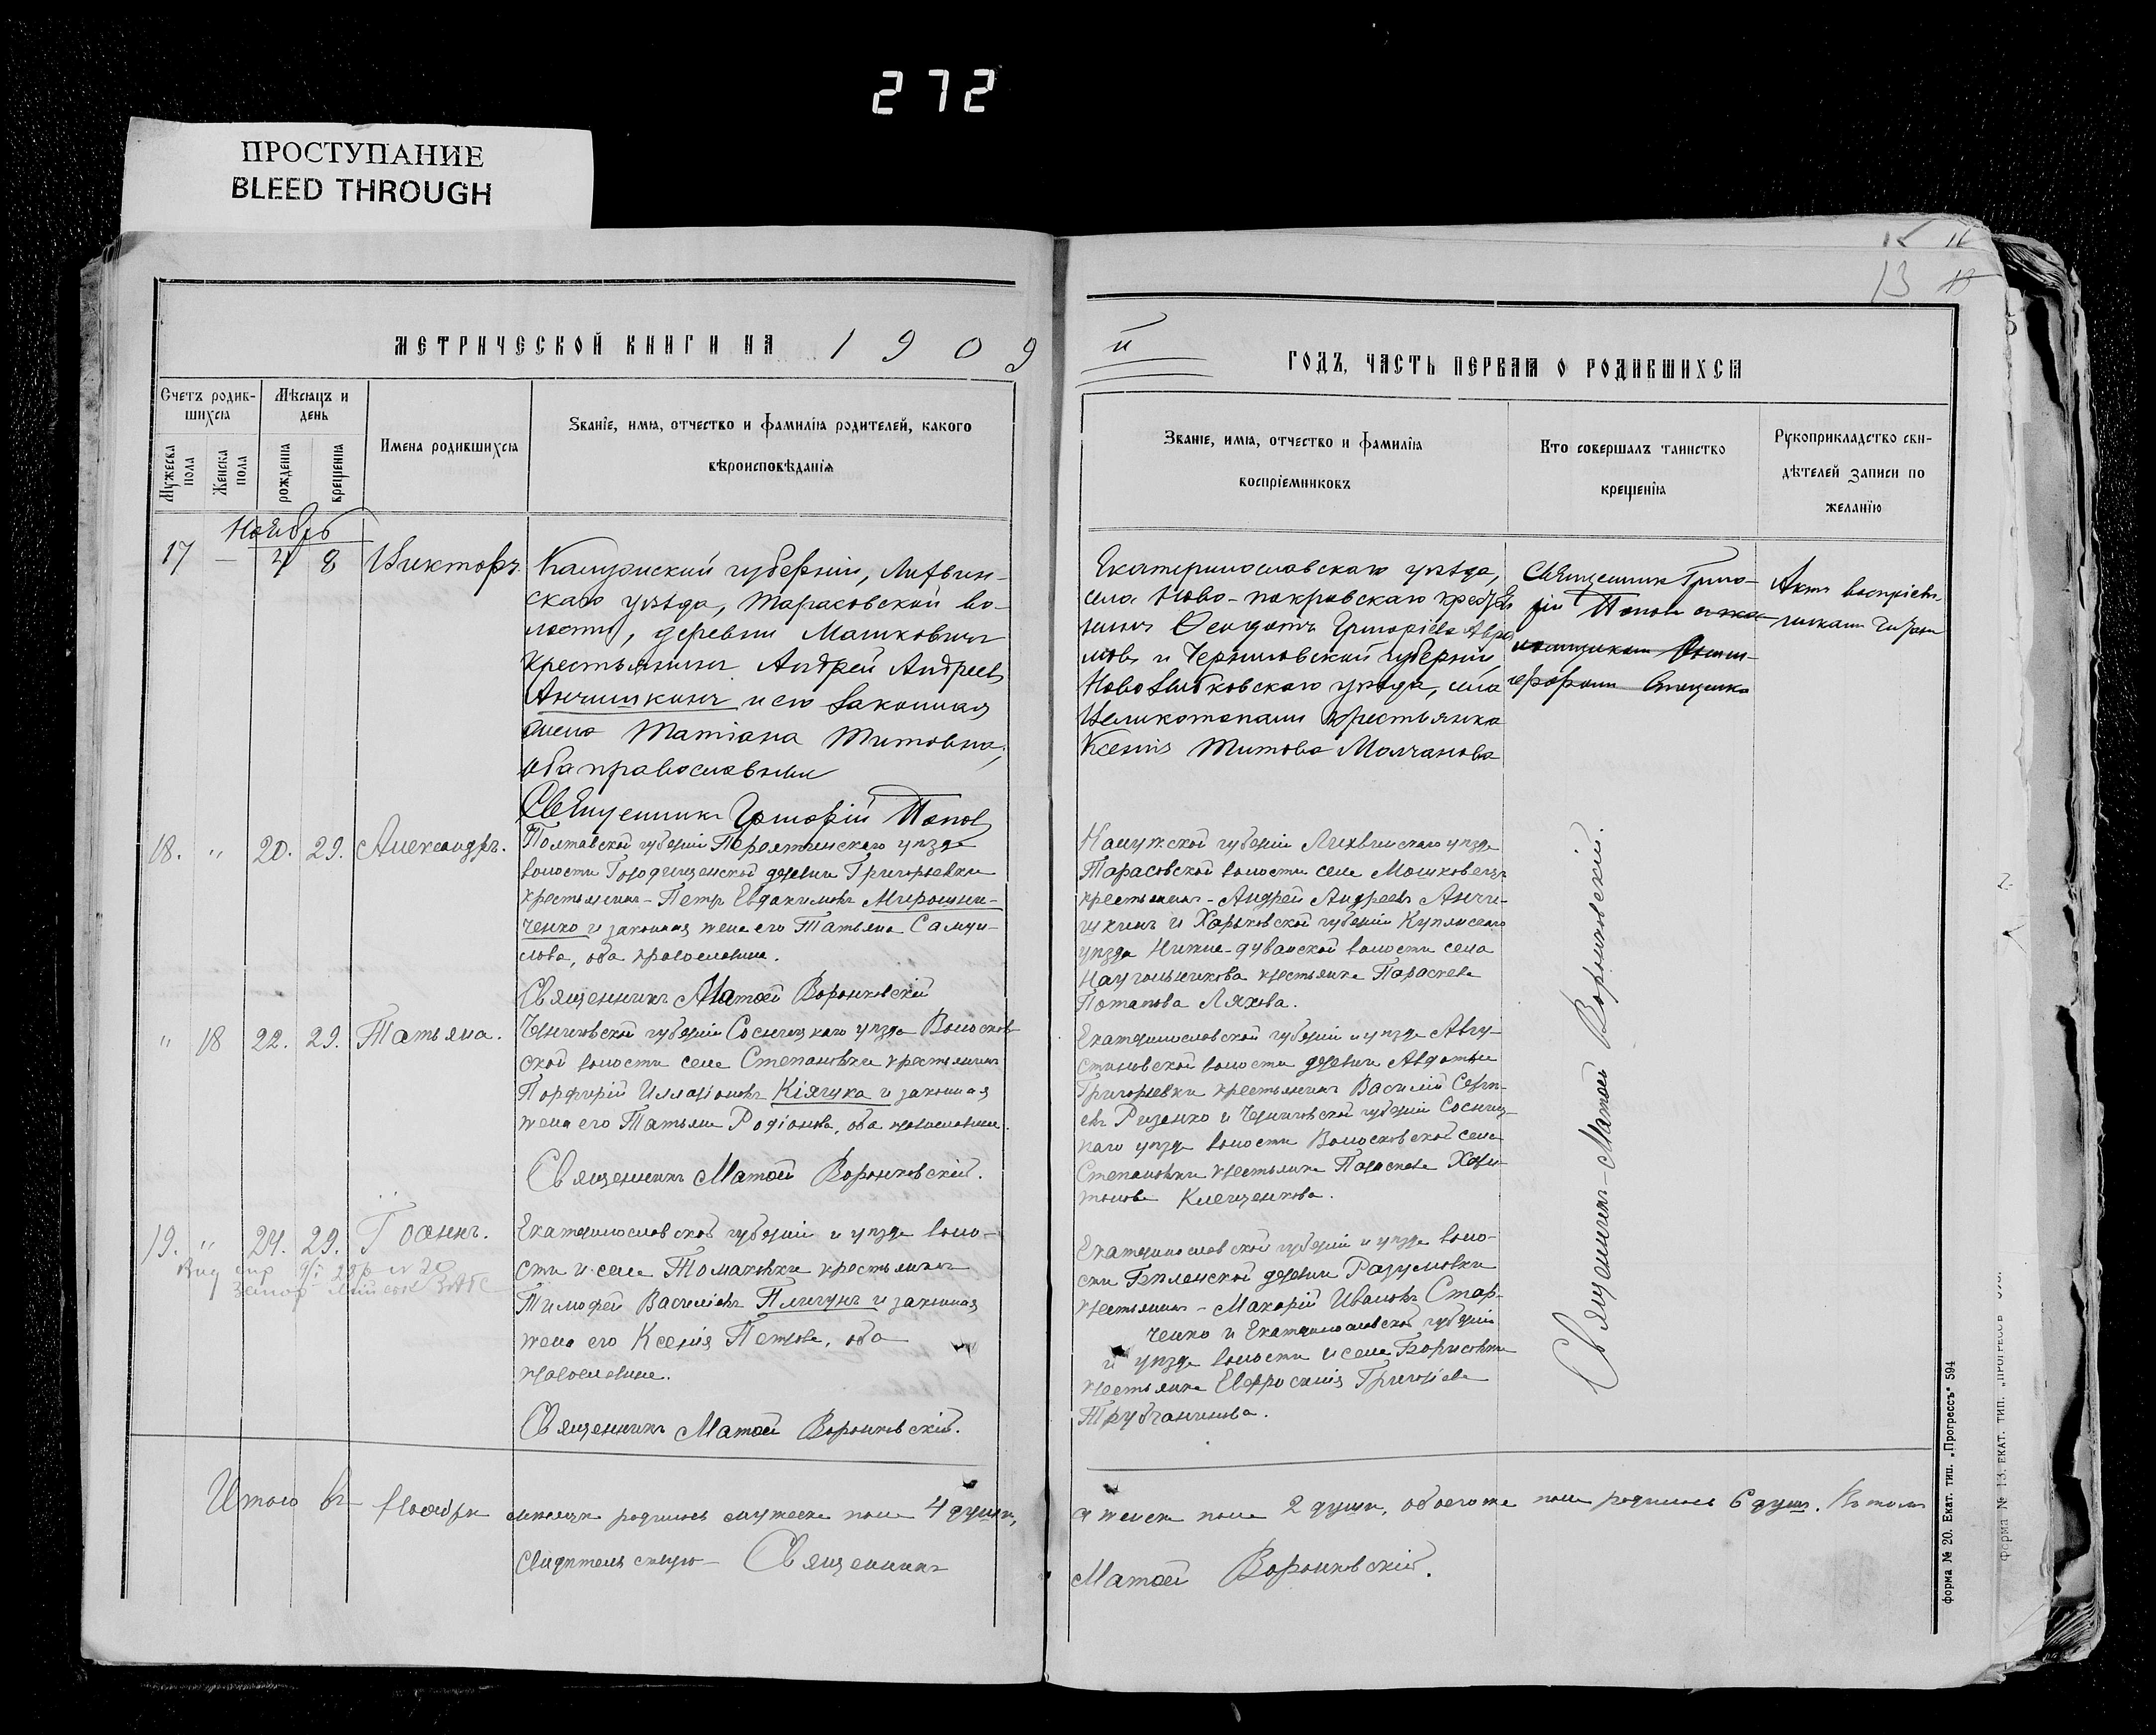 272
ПРОСТУПАНИЕ
BLEED THROUGH
13
МЕТРИЧЕСКОЙ КНИГИ НА 1909
ГОДЪ, ЧАСТЬ ПЕРВАЯ О РОДИВШИХСЯ
Счетъ родив-
шихся
Мѣсяцъ и
день
Мужеска пола
Женска пола
рожденія
крещенія
Имена родившихся
Званіе, имя, отчество и фамилія родителей, какого
вѣроисповѣданія
Званіе, имя, отчество и фамилія
воспріемниковъ
Кто совершалъ таинство
крещенія
Рукоприкладство сви-
дѣтелей записи по
желанію
Ноябрь
17 — 4 8 Викторъ
Калужской губерніи, Лихвин-
скаго уѣзда, Тарасовской во-
лости, деревни Машковичи
крестьянинъ Андрей Андреевъ
Анчишкинъ и его законная
жена Татіана Титовна,
оба православные
Священникъ Григорій Попов
Екатеринославскаго уѣзда,
села Ново-покровскаго крестья
нинъ Григоріевъ
и Черниговской губерніи,
Новозыбковскаго уѣзда, села
Великотопали крестьянка
Ксенія Титова Молчанова
Священник Григо-
рій Попов
18. " 20. 29. Александръ.
Полтавской губерніи Пирятинскаго уѣзда
волости Городищенской деревни Григорьевки
крестьянинъ - Петръ Евдокимовъ Мирошни-
ченко и законная жена его Татьяна Самуи-
лова, оба православные.
Священникъ Матѳей Воронковскій
Калужской губерніи Лихвинскаго уѣзда
Тарасовской волости села Мошковичи
крестьянинъ - Андрей Андреевъ Анчи-
шкинъ и Харьковской губерніи Купянскаго
уѣзда Нижне-дуванской волости села
крестьянка Параскева
Потапова Ляхова.
" 18 22. 29. Татьяна.
Черниговской губерніи Сосницкаго уѣзда Волосков-
ской волости села Степановки крестьянинъ
Порфирій Илларіоновъ Кіяшка и законная
жена его Татьяна Родіонова, оба православные.
Священникъ Матѳей Воронковскій.
Екатеринославской губерніи и уѣзда Авгу-
стиновской волости деревни Авдотьи
Григорьевки крестьянинъ Василій Сергѣ-
евъ и Черниговской губерніи Сосниц-
каго уѣзда волости Волосковской села
Степановки крестьянка Параскева Хари-
тонова Клещенкова.
19. " 24. 29. Іоаннъ.
Екатеринославской губерніи и уѣзда воло-
сти и села Томаковки крестьянинъ
Тимофей Василіевъ Пличунъ и законная
жена его Ксенія Петрова, оба
православные.
Священникъ Матѳей Воронковскій.
Екатеринославской губерніи и уѣзда воло-
сти деревни Разумовки
крестьянинъ - Макарій Ивановъ Стар-
ченко и Екатеринославской губерніи
и уѣзда волости и села Борисовки
крестьянка Евфросинія Григоріева
Трубчанинова.
Священникъ - Матѳей Воронковскій.
Итого въ Ноябрѣ мѣсяцѣ родилось мужеска пола 4 души,
а женска пола 2 души, обоего же пола родилось 6 душъ. Въ томъ
свидѣтельствую - Священникъ
Матѳей Воронковскій.
форма № 20. Екат. тип. „Прогрессъ" 594
форма № 13. ЕКАТ. ТИП. „ПРОГРЕССЪ"